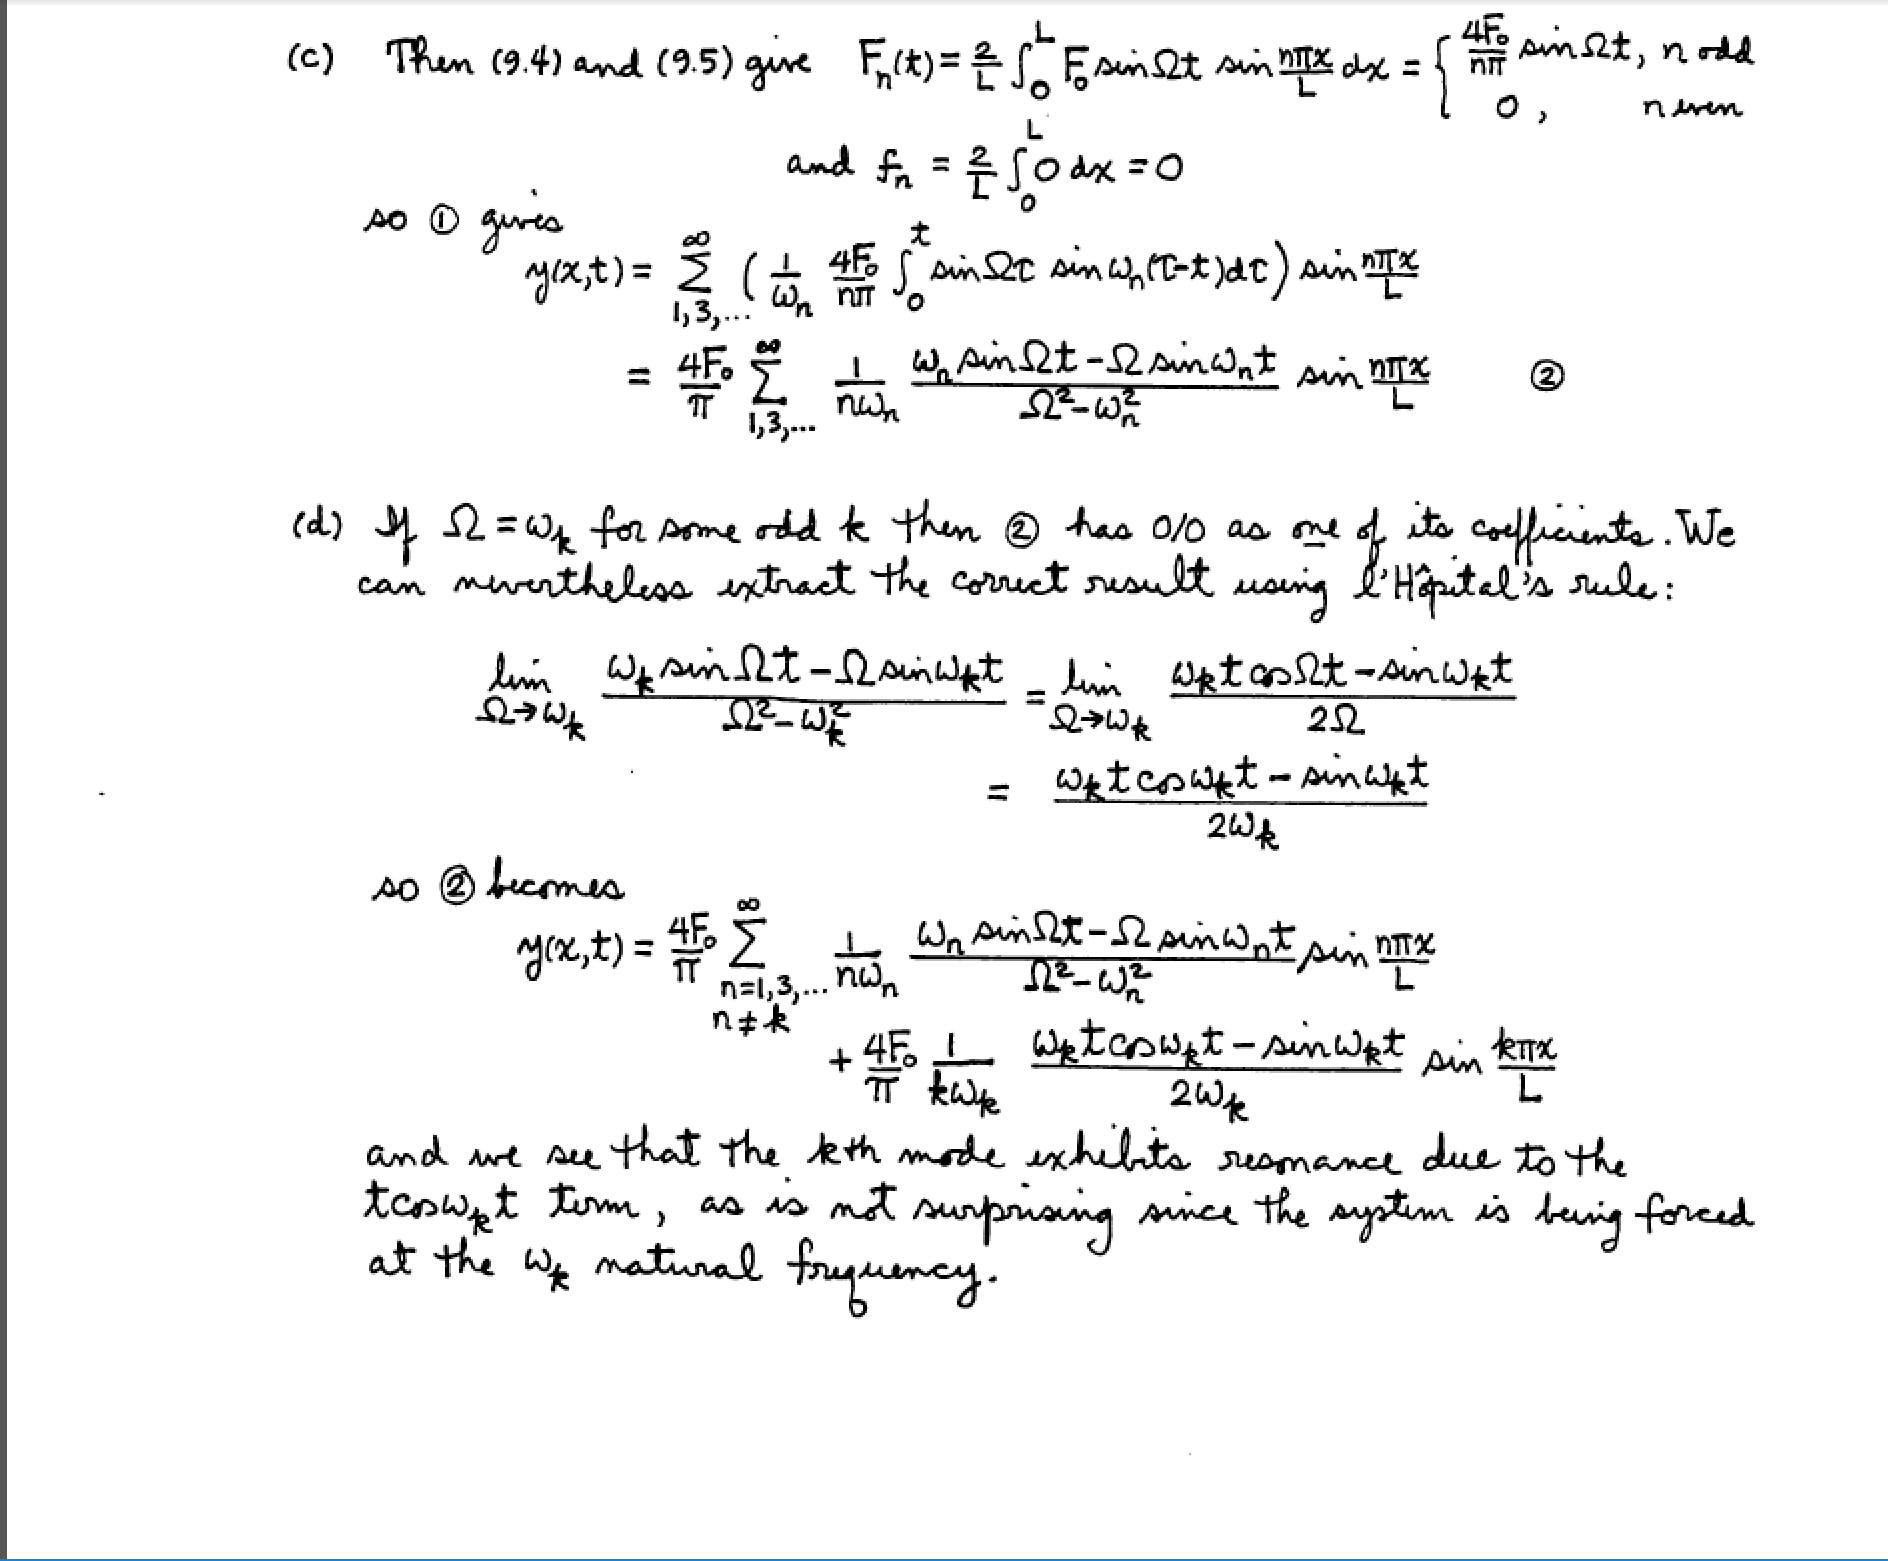 (c) Then (9.4) and (9.5) give Fₙ(t) = 2/L ∫₀ᴸ F₀ sin Ωt sin nπx/L dx = { 4F₀/nπ sin Ωt, n odd
0, n even
and fₙ = 2/L ∫₀ᴸ 0 dx = 0
so ① gives
y(x,t) = ∑_{1,3,...}^∞ ( 1/ωₙ 4F₀/nπ ∫₀ᵗ sin Ωτ sin ωₙ(τ-t)dτ ) sin nπx/L
= 4F₀/π ∑_{1,3,...}^∞ 1/nωₙ (ωₙ sin Ωt - Ω sin ωₙt)/(Ω² - ωₙ²) sin nπx/L ②
(d) If Ω = ωₖ for some odd k then ② has 0/0 as one of its coefficients. We
can nevertheless extract the correct result using l'Hôpital's rule:
lim_{Ω→ωₖ} (ωₖ sin Ωt - Ω sin ωₖt)/(Ω² - ωₖ²) = lim_{Ω→ωₖ} (ωₖt cos Ωt - sin ωₖt)/2Ω
= (ωₖt cos ωₖt - sin ωₖt)/2ωₖ
so ② becomes
y(x,t) = 4F₀/π ∑_{n=1,3,... n≠k}^∞ 1/nωₙ (ωₙ sin Ωt - Ω sin ωₙt)/(Ω² - ωₙ²) sin nπx/L
+ 4F₀/π 1/kωₖ (ωₖt cos ωₖt - sin ωₖt)/2ωₖ sin kπx/L
and we see that the kth mode exhibits resonance due to the
t cos ωₖt term, as is not surprising since the system is being forced
at the ωₖ natural frequency.